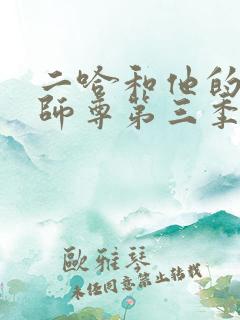 二哈和他的
師尊第三季
歐雅琴
未经同意禁止转载